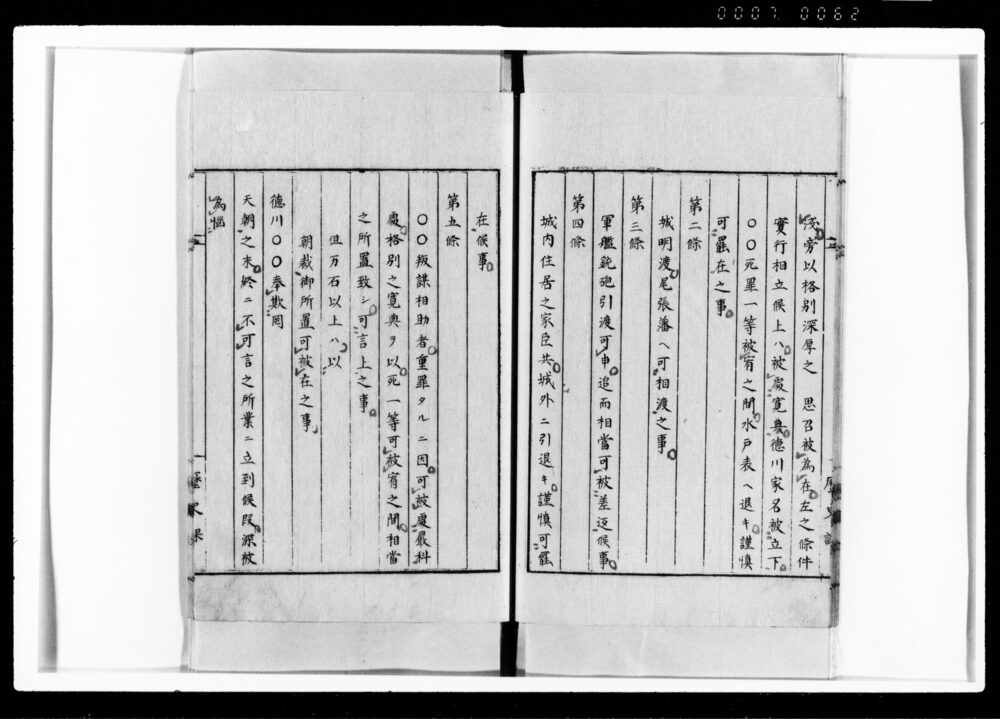 0007 0062
淺旁以格別深厚之　思召被為在左之條件
實行相立候上ハ被處寛典德川家名被立下
〇〇死罪一等被宥之間水戸表ヘ退キ謹慎
可罷在之事
第二條
城明渡尾張藩ヘ可相渡之事
第三條
軍艦銃砲引渡可申追而相當可被差返候事
第四條
城内住居之家臣共城外ニ引退キ謹慎可罷
在候事
第五條
〇〇叛謀相助者重罪タルニ因可被處嚴科
處格別之寛典ヲ以死一等可被宥之間相當
之所置致シ可言上之事
但万石以上ハ以
朝裁御所置可被在之事
德川〇〇奉欺罔
天朝之末終ニ不可言之所業ニ立到候段深被
為惱